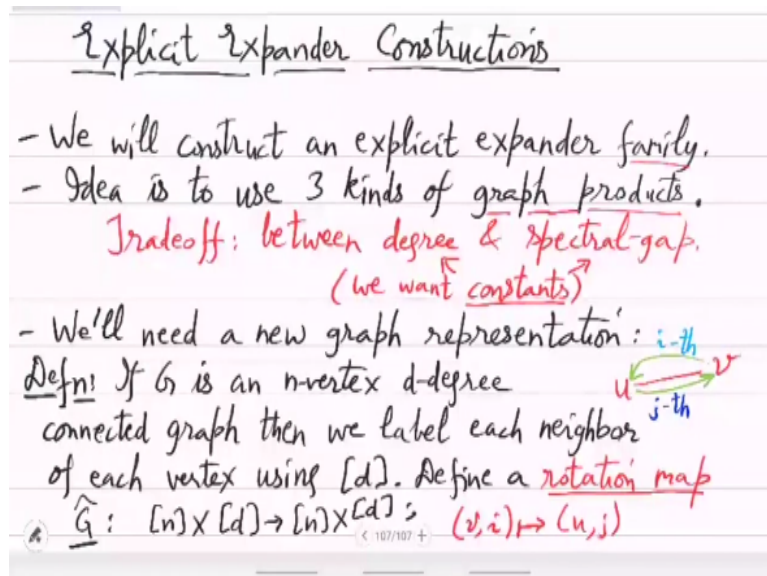 Explicit Expander Constructions
- We will construct an explicit expander family.
- Idea is to use 3 kinds of graph products.
Tradeoff: between degree & spectral-gap.
(we want constants)
- We'll need a new graph representation: i-th
Defn: If G is an n-vertex d-degree u v
connected graph then we label each neighbor j-th
of each vertex using [d]. Define a rotation map
Ĝ: [n]×[d]→[n]×[d]; (v,i)↦(u,j)
< 107/107 +